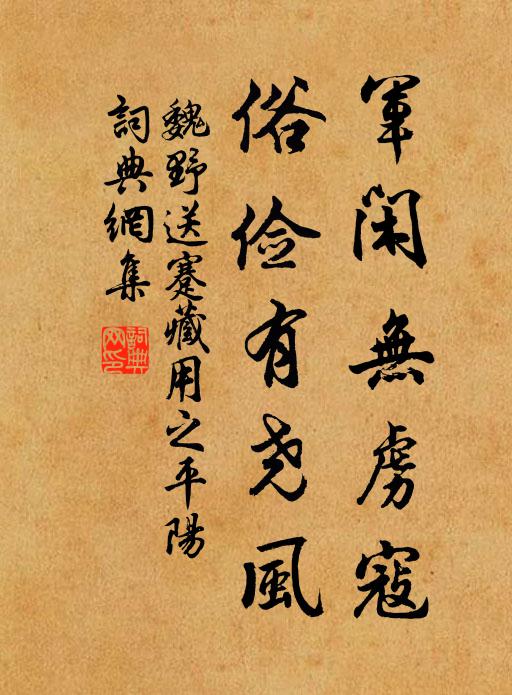 軍閑無虜寇
俗俭有尧風
魏野送蹇藏用之平陽
詞典網集
詞典
网印